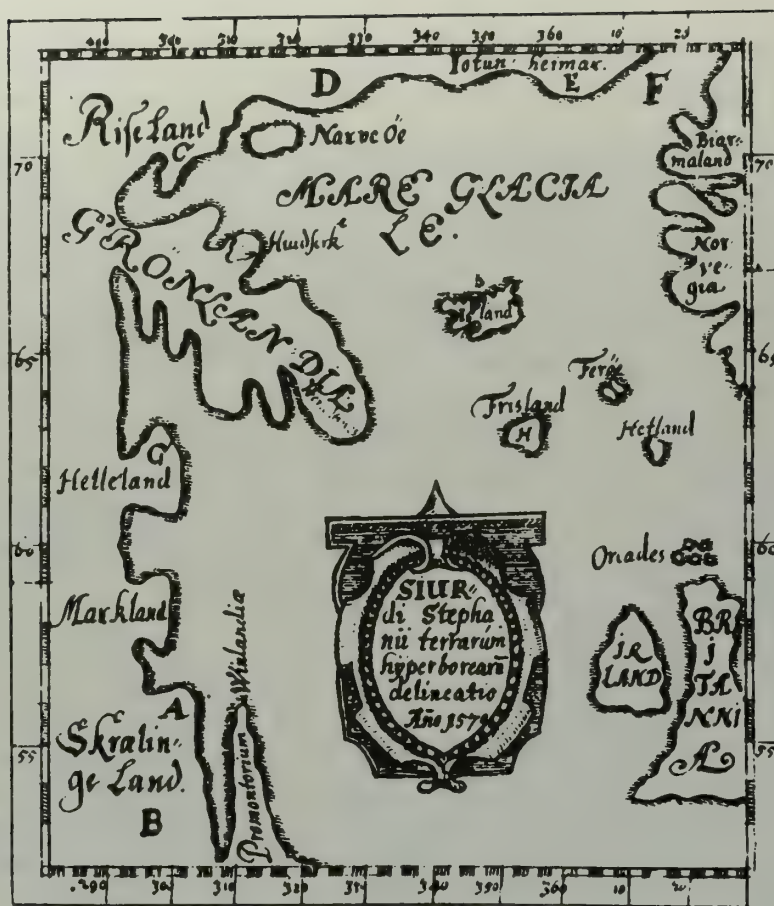 290 300 310 320 330 340 350 360 10 23
D
Iotun heimar.
E
F
Riseland
C
Narve Öe
Biar
maland
70
70
MARE GLACIA
LE.
GRÖNLANDIA
Huidserk
Nor
ve
gia
b
land
65
65
Feröe
Frisland
H
Hetland
G
Helleland
60
60
Orcades
Markland
SIUR
di Stepha
nii terrarum
hyperborearū
delineatio
Año 1570
IR
LAND
BR
I
TA
NNI
Æ
Promontorium Winlandiæ
A
Skræلin
ge Land.
B
55
55
.290 300 310 320 330 340 350 360 10 20